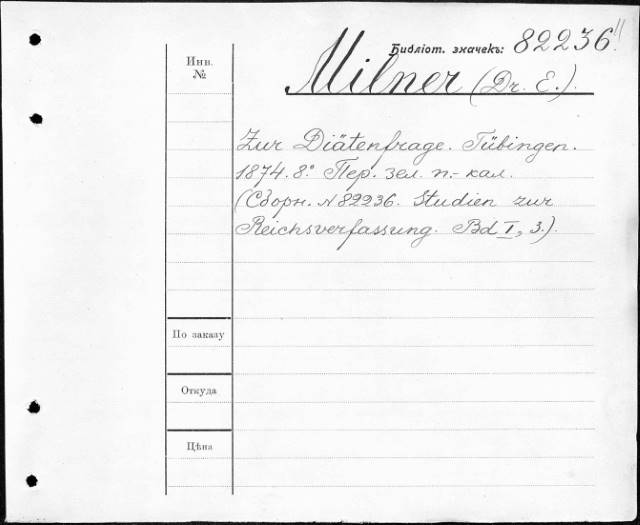 Библіот. значекъ: 82236"
Инв.
№
Milner (Dr. E.).
Zur Diätenfrage. Tübingen.
1874. 8.° Пер. зел. п.-кал.
(Сборн. № 82236. Studien zur
Reichsverfassung. Bd I, 3.).
По заказу
Откуда
Цѣна